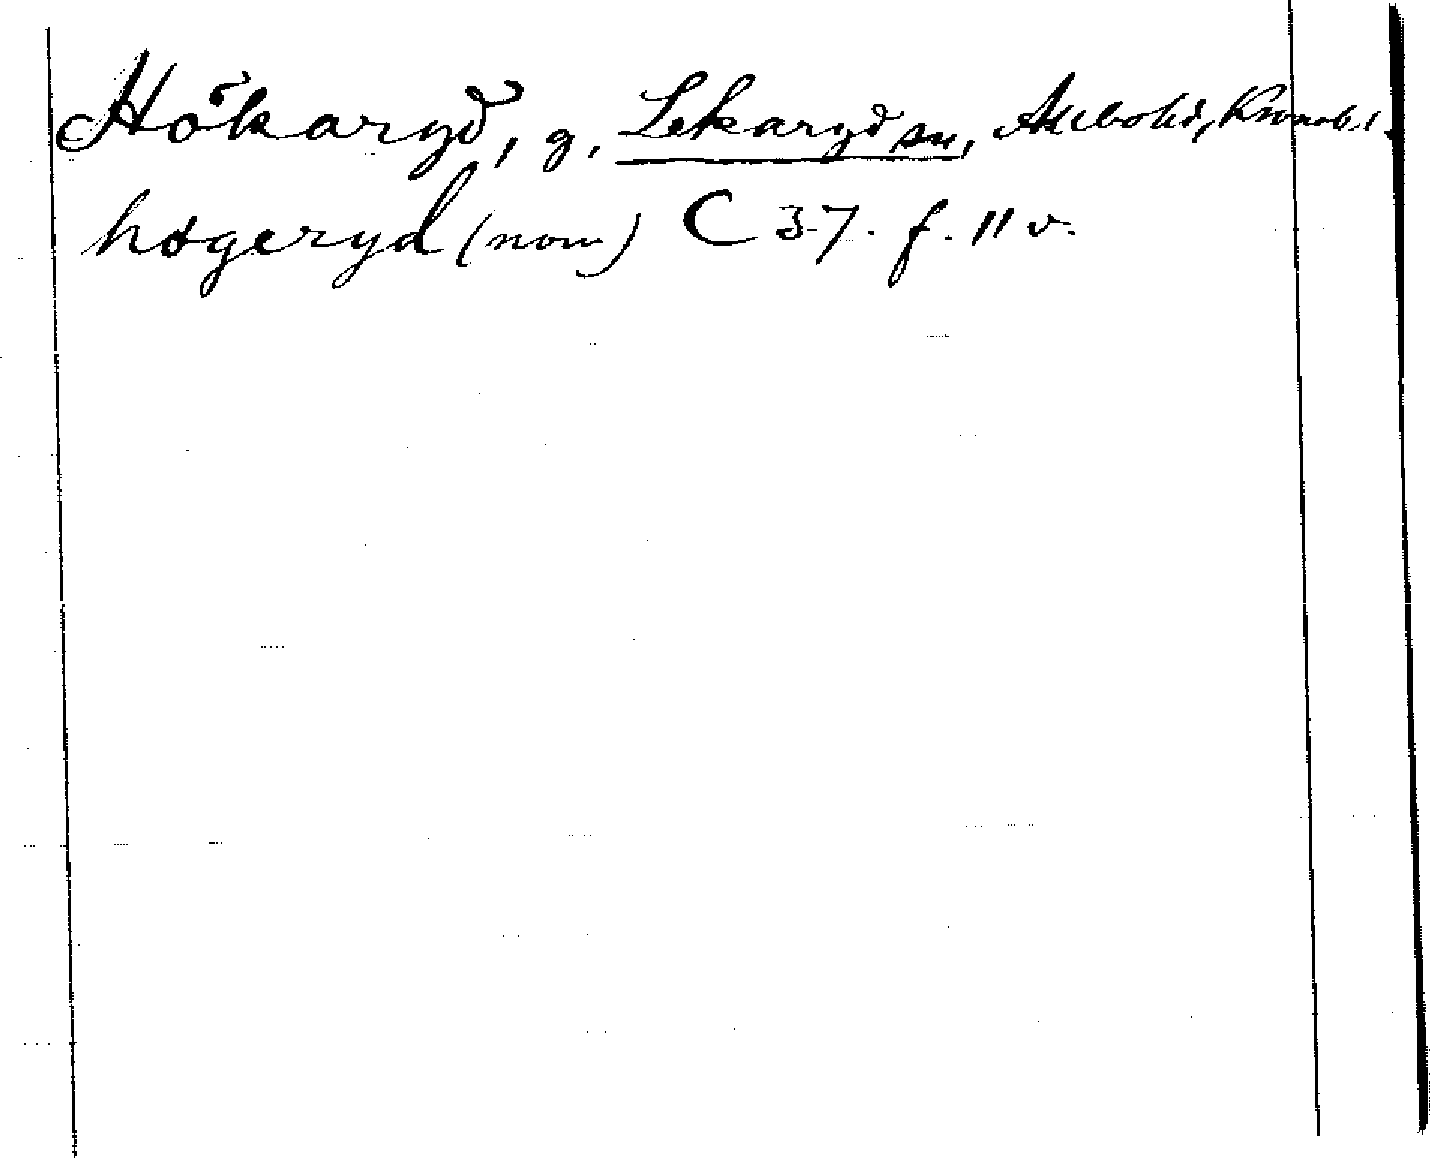 Hökaryd, g. Lekaryd sn, Allbo hd, Kronob. l.
høgeryd (nom) C 37. f. 11 v.